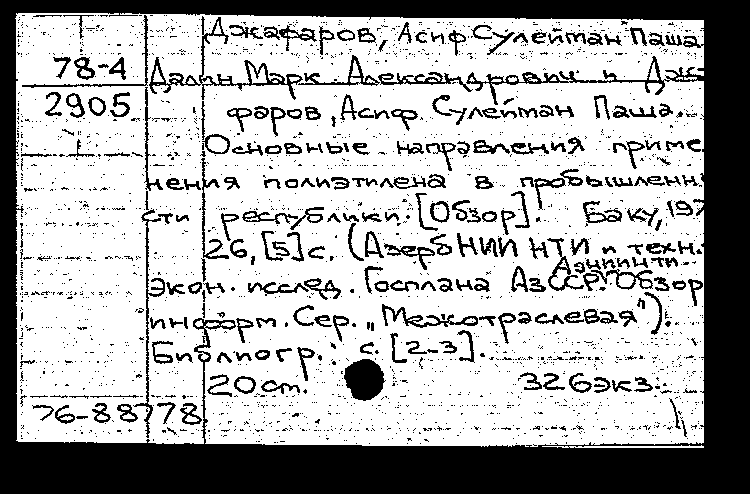 Джафаров, Асиф Сулейман Паша
78-4 Далин, Марк Александрович и Джа
2905 фаров, Асиф Сулейман Паша.
Основные направления приме
нения полиэтилена в промышленн
сти республики. [Обзор]. Баку, 197
26, [5] с. (АзербНИИНТИ и техн.-
АзНИИНТИ
экон. исслед. Госплана АзССР. Обзор
информ. Сер. „Межотраслевая").
Библиогр.: с. [2-3].
20 см. 326 экз.
76-88778